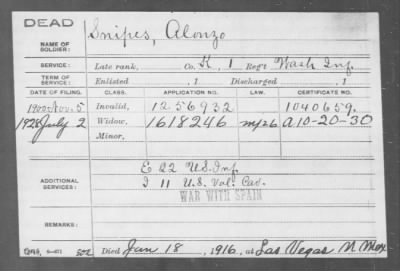 DEAD
NAME OF SOLDIER: Snipes, Alonzo
SERVICE: Late rank, Co. K, 1 Reg't Wash Inf.
TERM OF SERVICE: Enlisted , 1 Discharged , 1
DATE OF FILING. CLASS. APPLICATION NO. LAW. CERTIFICATE NO.
1900 Nov. 5 Invalid, 1256932 1040659.
1928 July 2 Widow, 1618246 A10-20-30
Minor,
ADDITIONAL SERVICES: E 22 U.S. Inf
I 11 U.S. Vol. Cav.
WAR WITH SPAIN
REMARKS:
Died Jan 18, 1916, at Las Vegas N Mex